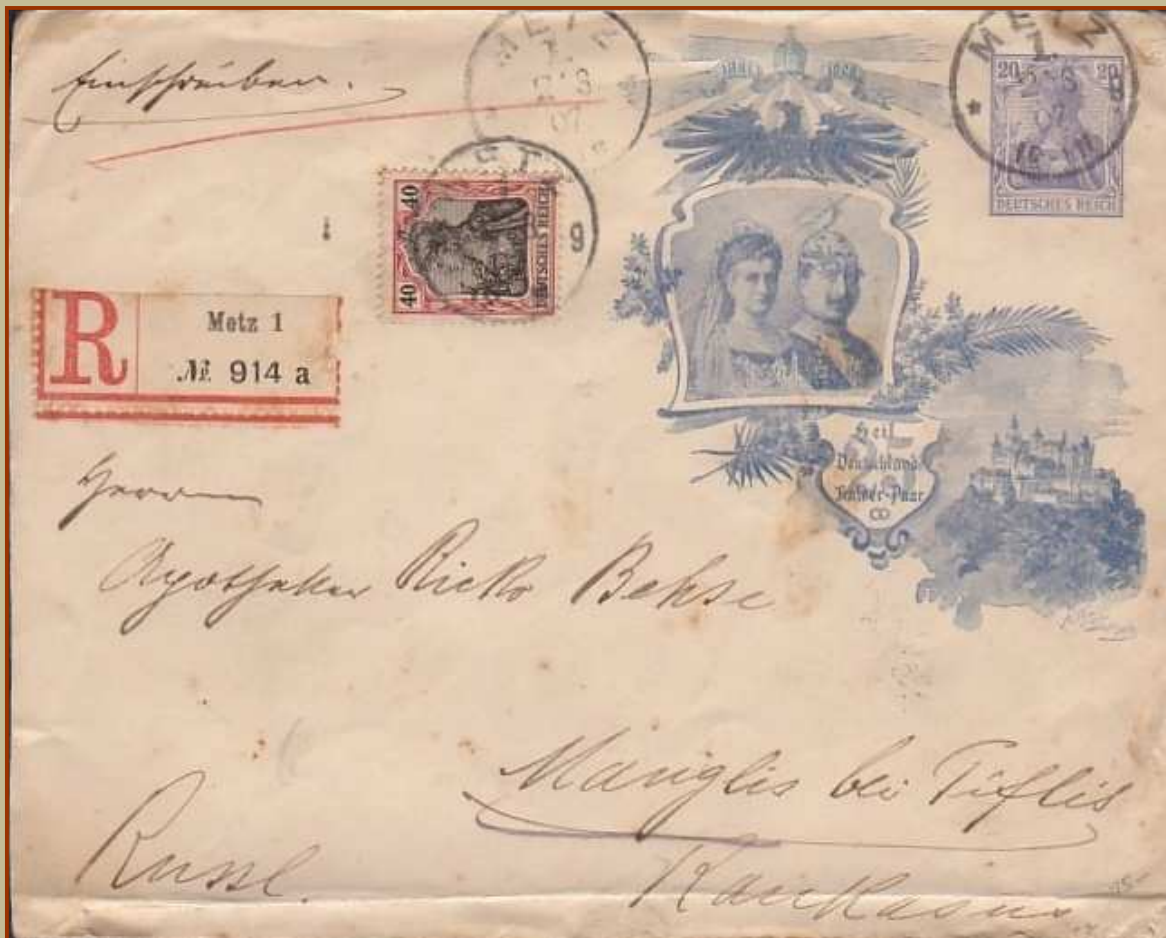 Einschreiben.
METZ
07
METZ
1.
07
* g
10-11
20 20
DEUTSCHES REICH
1881 1906
40 40
DEUTSCHES REICH
g
R
Metz 1
№ 914 a
Heil
Deutschlands
Kaiser-Paar
25
Herrn
Apotheker Rieks Behse
Manglis bei Tiflis
Russl.
Kaukasus